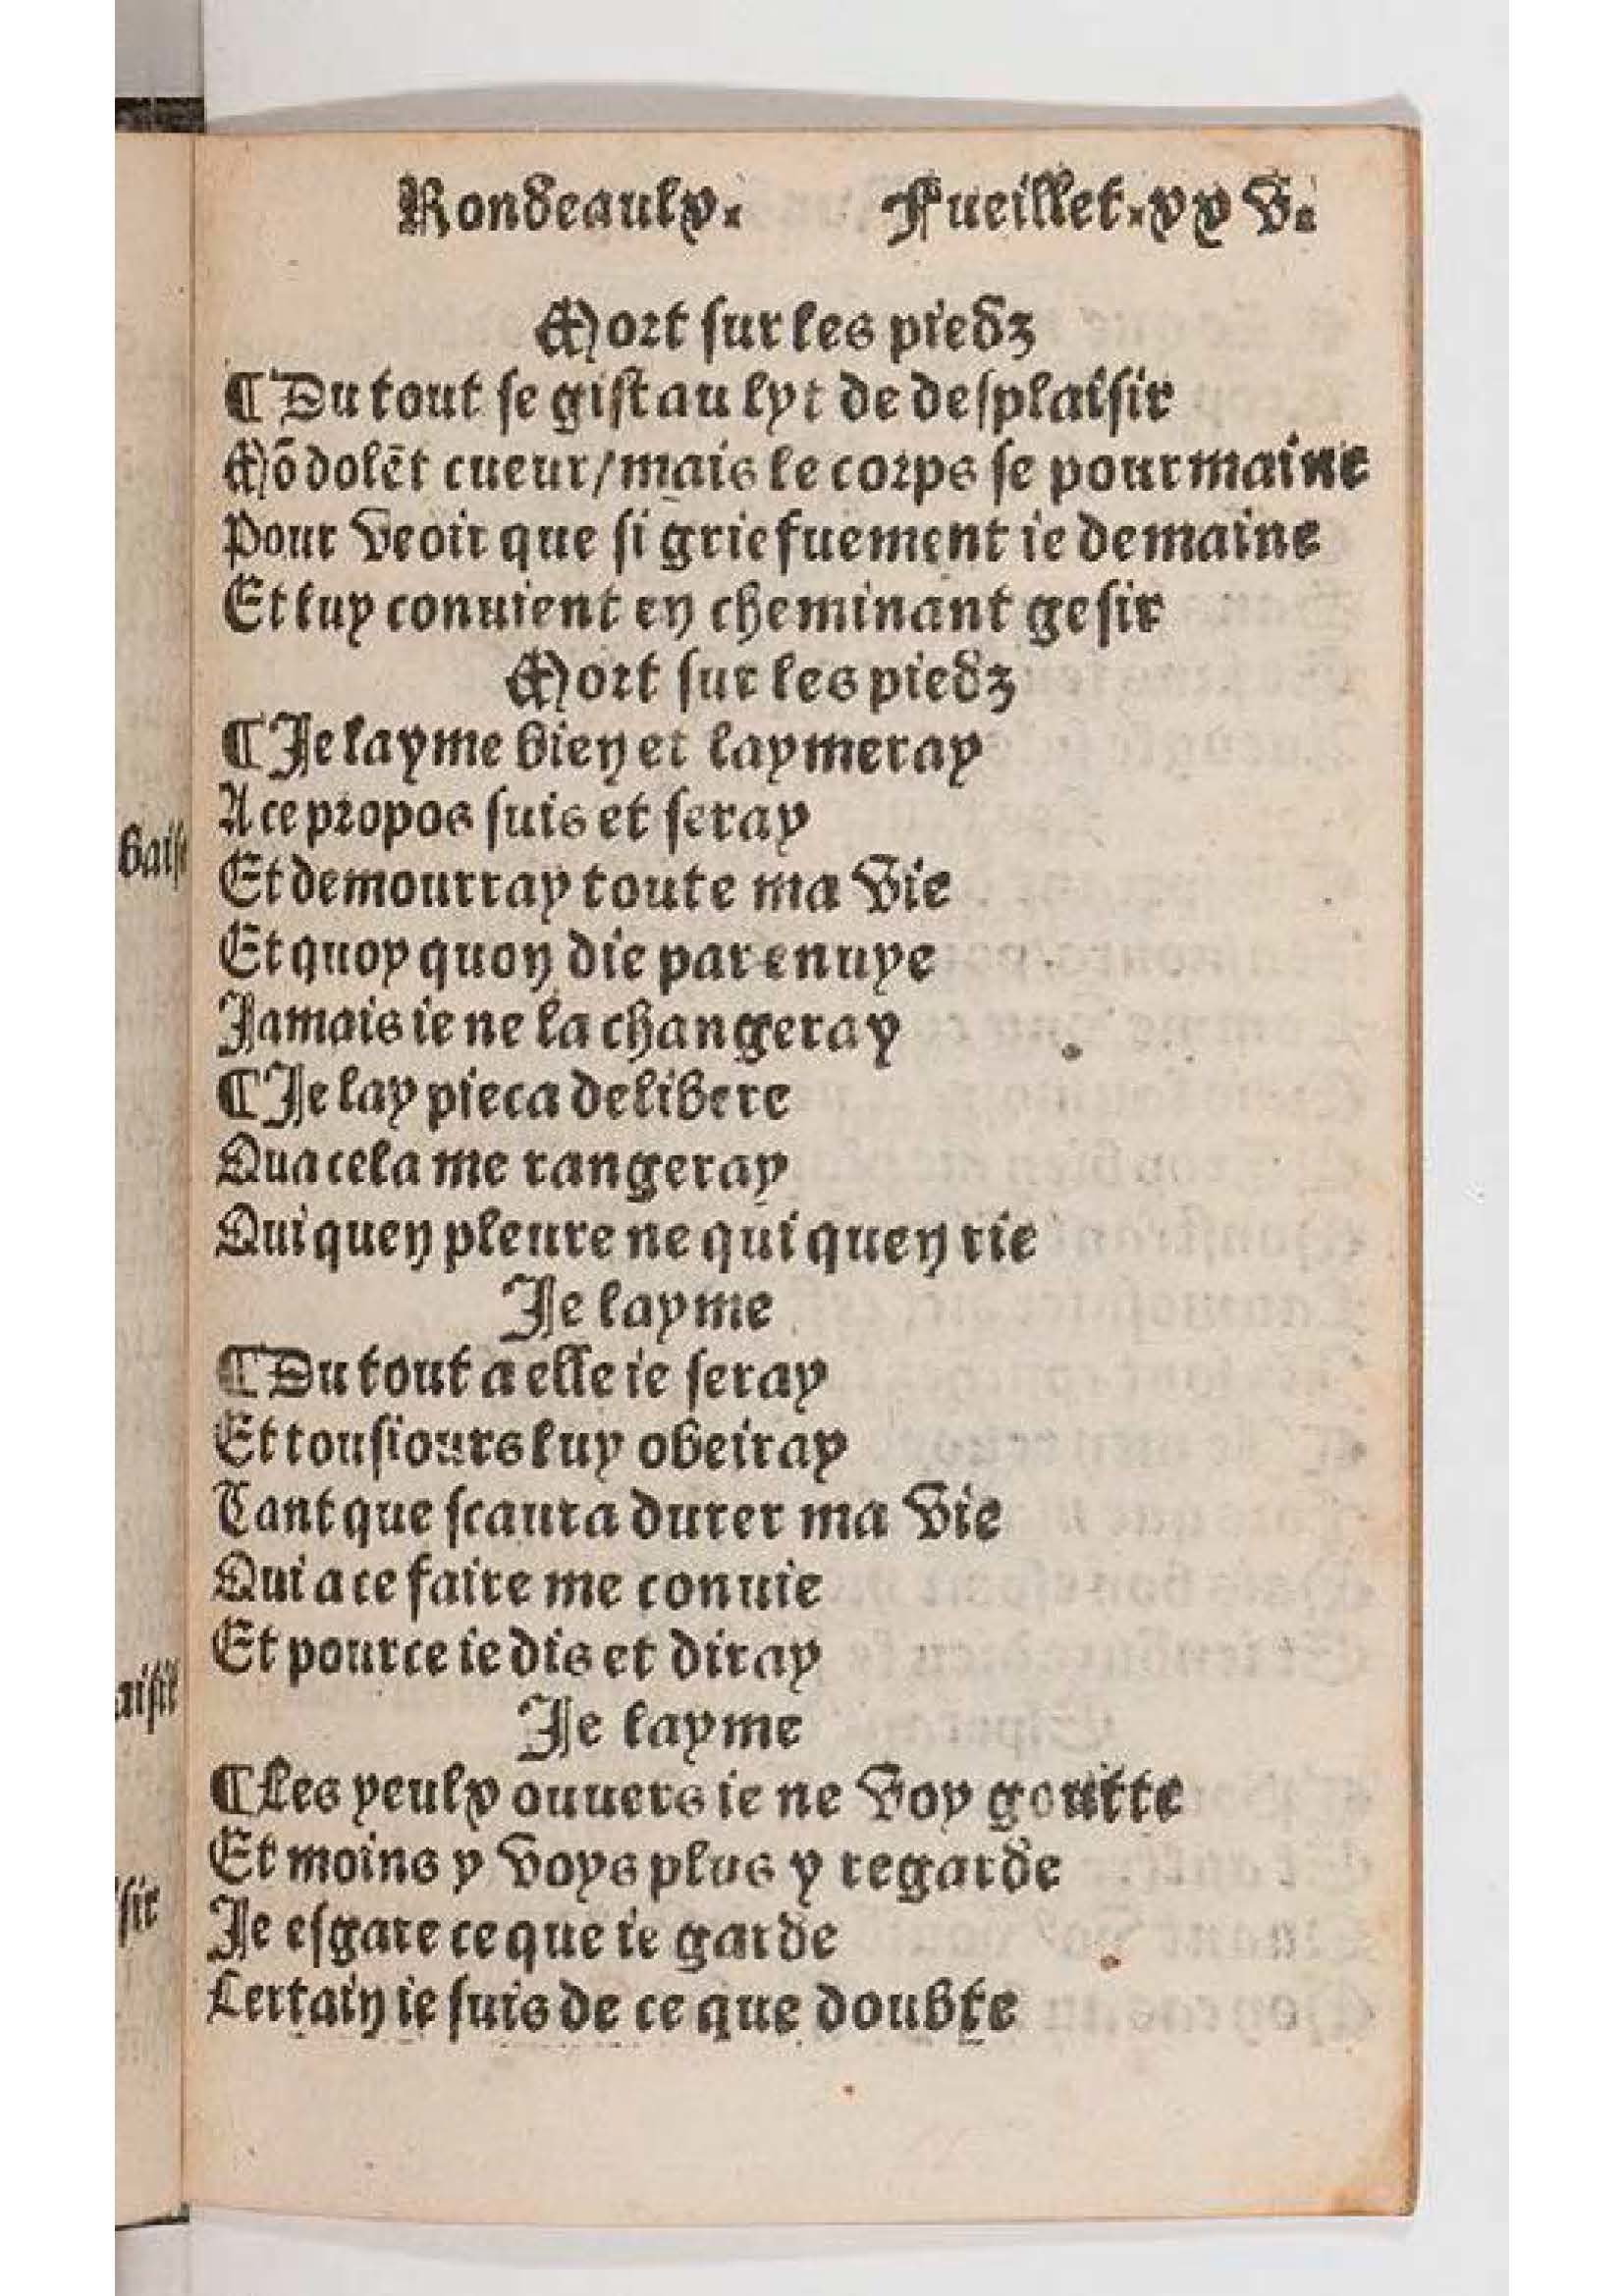 Rondeaulx. Fueillet.xxv.
Mort sur les piedz
¶Du tout se gist au lyt de desplaisir
Mõ dolẽt cueur/mais le corps se pourmaine
Pour veoir que si griefuement ie demaine
Et luy conuient en cheminant gesir
Mort sur les piedz
¶Je layme bien et laymeray
A ce propos suis et seray
Et demourray toute ma vie
Et quoy quon die par enuye
Jamais ie ne la changeray
¶Je lay pieca delibere
Qua cela me rangeray
Qui quen pleure ne qui quen rie
Je layme
¶Du tout a elle ie seray
Et tousiours luy obeiray
Tant que scaura durer ma vie
Qui a ce faire me conuie
Et pource ie dis et diray
Je layme
¶Les yeulx ouuers ie ne voy goutte
Et moins y voys plus y regarde
Je esgare ce que ie garde
Certain ie suis de ce que doubte
baise
aisir
sir